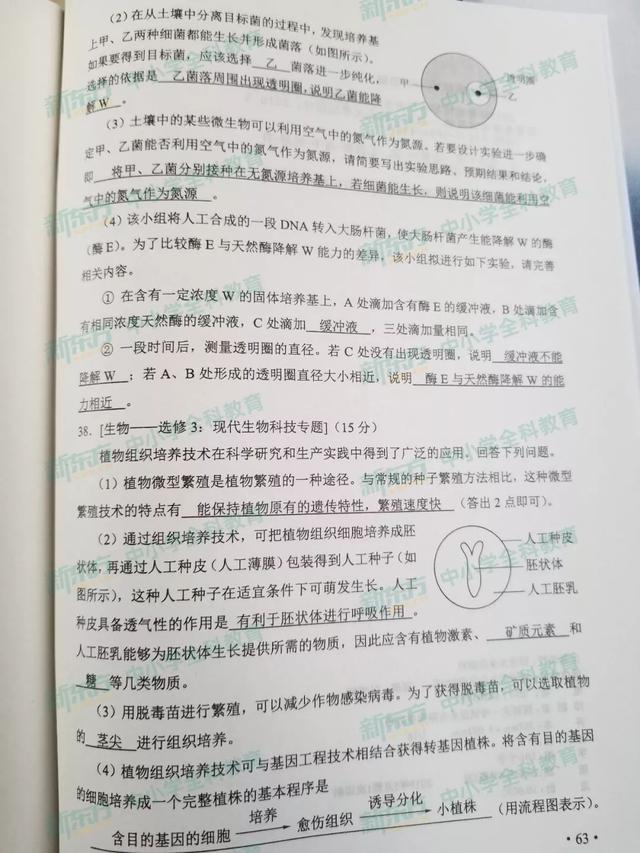 (2)在从土壤中分离目标菌的过程中,发现培养基
上甲、乙两种细菌都能生长并形成菌落(如图所示)。
如果要得到目标菌,应该选择 乙 菌落进一步纯化,
选择的依据是 乙菌落周围出现透明圈,说明乙菌能降
解 W 。
甲
透明圈
乙
(3)土壤中的某些微生物可以利用空气中的氮气作为氮源。若要设计实验进一步确
定甲、乙菌能否利用空气中的氮气作为氮源,请简要写出实验思路、预期结果和结论,
即 将甲、乙菌分别接种在无氮源培养基上,若细菌能生长,则说明该细菌能利用空
气中的氮气作为氮源 。
(4)该小组将人工合成的一段 DNA 转入大肠杆菌,使大肠杆菌产生能降解 W 的酶
(酶 E)。为了比较酶 E 与天然酶降解 W 能力的差异,该小组拟进行如下实验,请完善
相关内容。
① 在含有一定浓度 W 的固体培养基上,A 处滴加含有酶 E 的缓冲液,B 处滴加含
有相同浓度天然酶的缓冲液,C 处滴加 缓冲液 ,三处滴加量相同。
② 一段时间后,测量透明圈的直径。若 C 处没有出现透明圈,说明 缓冲液不能
降解 W ;若 A、B 处形成的透明圈直径大小相近,说明 酶 E 与天然酶降解 W 的能
力相近 。
38. [生物——选修 3:现代生物科技专题](15 分)
植物组织培养技术在科学研究和生产实践中得到了广泛的应用。回答下列问题。
(1)植物微型繁殖是植物繁殖的一种途径。与常规的种子繁殖方法相比,这种微型
繁殖技术的特点有 能保持植物原有的遗传特性,繁殖速度快 (答出 2 点即可)。
(2)通过组织培养技术,可把植物组织细胞培养成胚
状体,再通过人工种皮(人工薄膜)包装得到人工种子(如
图所示),这种人工种子在适宜条件下可萌发生长。人工
种皮具备透气性的作用是 有利于胚状体进行呼吸作用 。
人工胚乳能够为胚状体生长提供所需的物质,因此应含有植物激素、 矿质元素 和
糖 等几类物质。
人工种皮
胚状体
人工胚乳
(3)用脱毒苗进行繁殖,可以减少作物感染病毒。为了获得脱毒苗,可以选取植物
的 茎尖 进行组织培养。
(4)植物组织培养技术可与基因工程技术相结合获得转基因植株。将含有目的基因
的细胞培养成一个完整植株的基本程序是
含目的基因的细胞 培养 愈伤组织 诱导分化 小植株 (用流程图表示)。
·63·
新东方 中小学全科教育